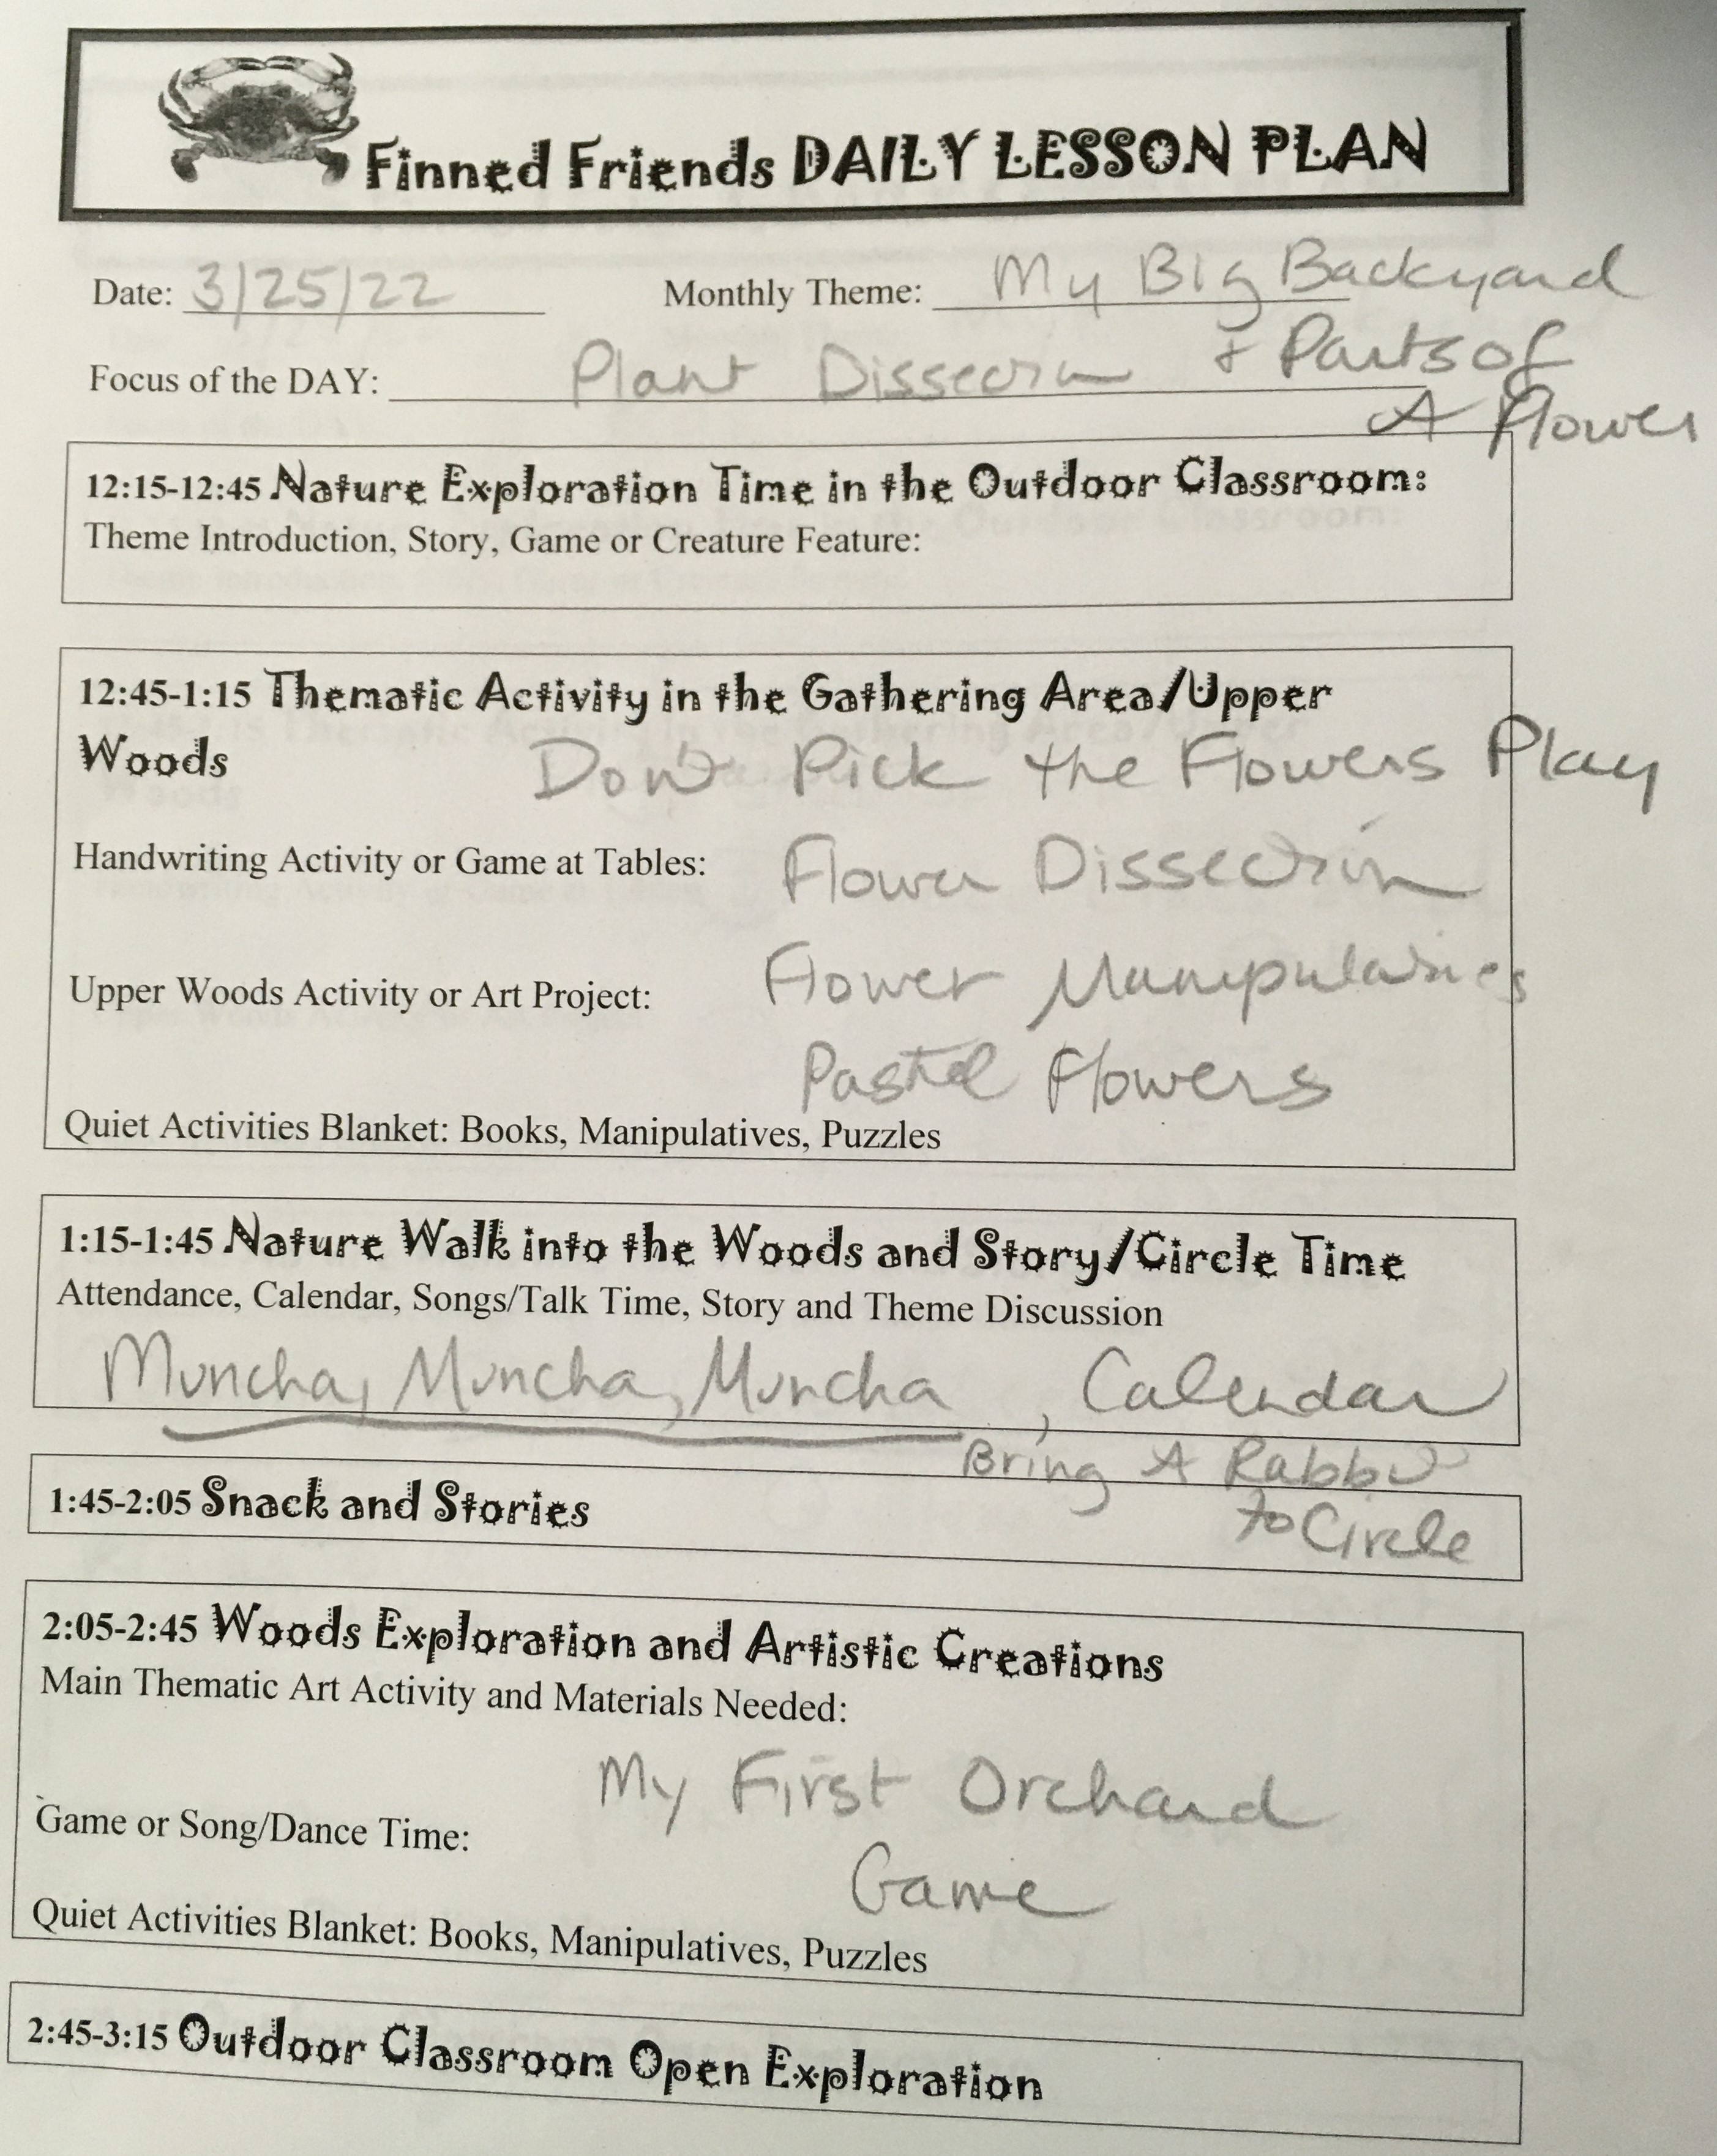 Finned Friends DAILY LESSON PLAN
Date: 3/25/22 Monthly Theme: My Big Backyard
Focus of the DAY: Plant Dissection + Parts of
A Flower
12:15-12:45 Nature Exploration Time in the Outdoor Classroom:
Theme Introduction, Story, Game or Creature Feature:
12:45-1:15 Thematic Activity in the Gathering Area/Upper
Woods Don't Pick the Flowers Play
Handwriting Activity or Game at Tables: Flower Dissection
Upper Woods Activity or Art Project: Flower Manipulatives
Pastel Flowers
Quiet Activities Blanket: Books, Manipulatives, Puzzles
1:15-1:45 Nature Walk into the Woods and Story/Circle Time
Attendance, Calendar, Songs/Talk Time, Story and Theme Discussion
Muncha, Muncha, Muncha, Calendar
Bring A Rabbit
to Circle
1:45-2:05 Snack and Stories
2:05-2:45 Woods Exploration and Artistic Creations
Main Thematic Art Activity and Materials Needed:
My First Orchard
Game or Song/Dance Time:
Game
Quiet Activities Blanket: Books, Manipulatives, Puzzles
2:45-3:15 Outdoor Classroom Open Exploration